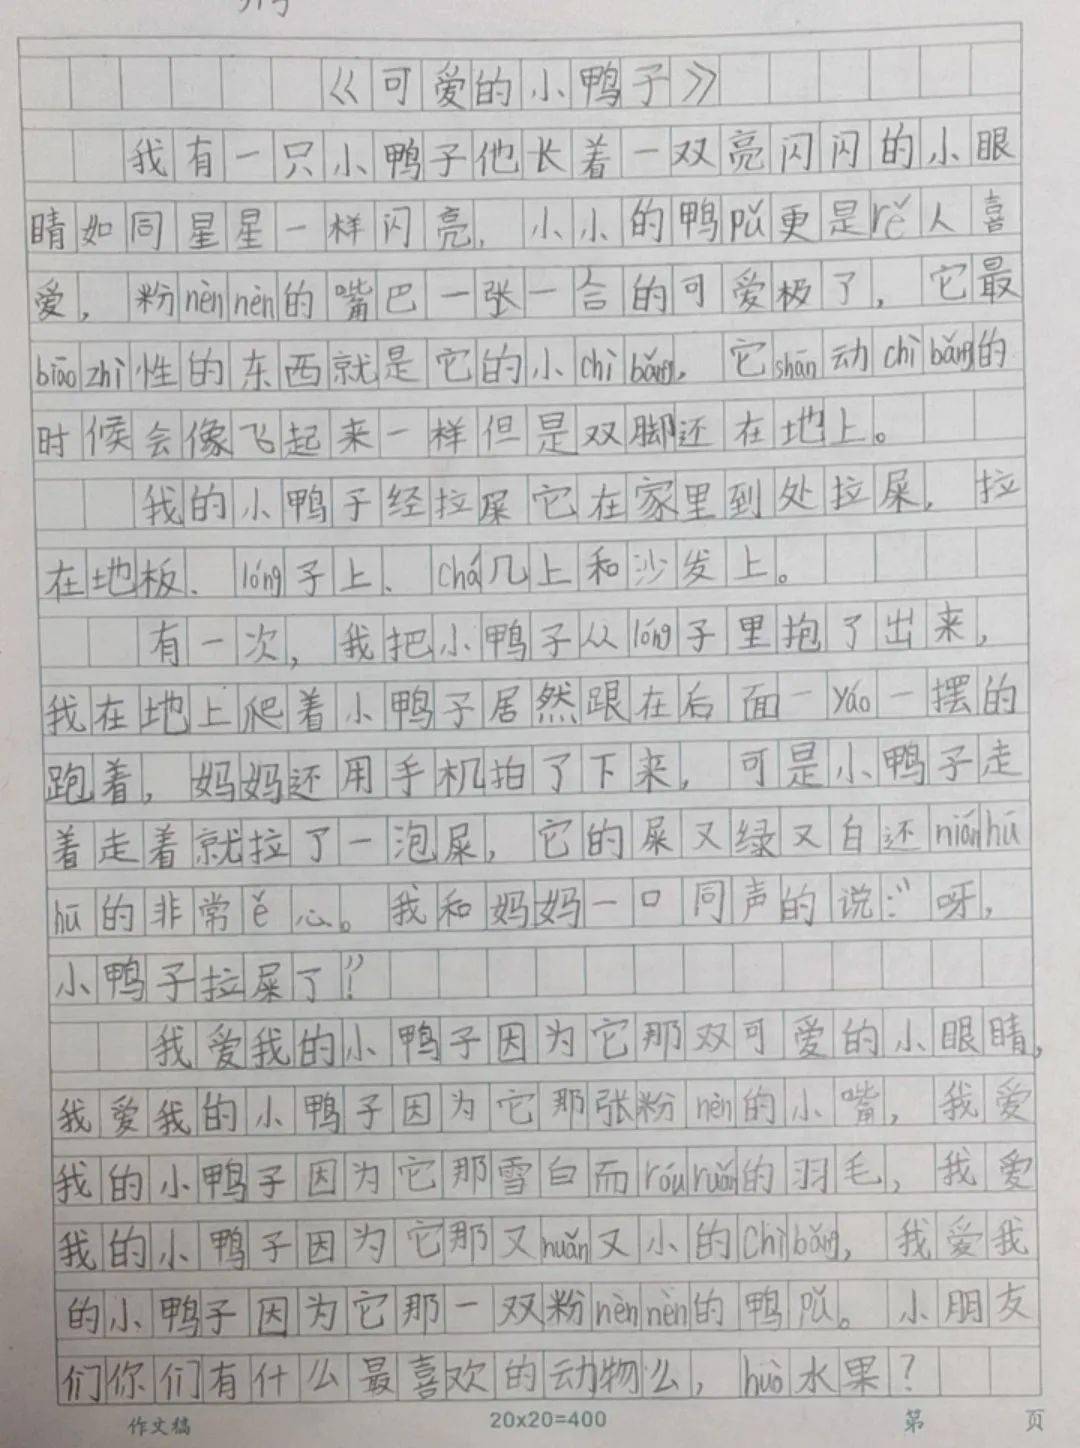 《可爱的小鸭子》
我有一只小鸭子他长着一双亮闪闪的小眼
睛如同星星一样闪亮，小小的鸭pǔ更是rě人喜
爱，粉nènnèn的嘴巴一张一合的可爱极了，它最
biāozhì性的东西就是它的小chìbǎng，它shān动chìbǎng的
时候会像飞起来一样但是双脚还在地上。
我的小鸭子经拉屎它在家里到处拉屎，拉
在地板、lóng子上、chá几上和沙发上。
有一次，我把小鸭子从lóng子里抱了出来，
我在地上爬着小鸭子居然跟在后面一yáo一摆的
跑着，妈妈还用手机拍了下来，可是小鸭子走
着走着就拉了一泡屎，它的屎又绿又白还niánhū
hū的非常ě心。我和妈妈一口同声的说：“呀，
小鸭子拉屎了！”
我爱我的小鸭子因为它那双可爱的小眼睛，
我爱我的小鸭子因为它那张粉nèn的小嘴，我爱
我的小鸭子因为它那雪白而róuruǎn的羽毛，我爱
我的小鸭子因为它那又nuǎn又小的chìbǎng，我爱我
的小鸭子因为它那一双粉nènnèn的鸭pǔ。小朋友
们你们有什么最喜欢的动物么，huò水果？
作文稿 20x20=400 第 页